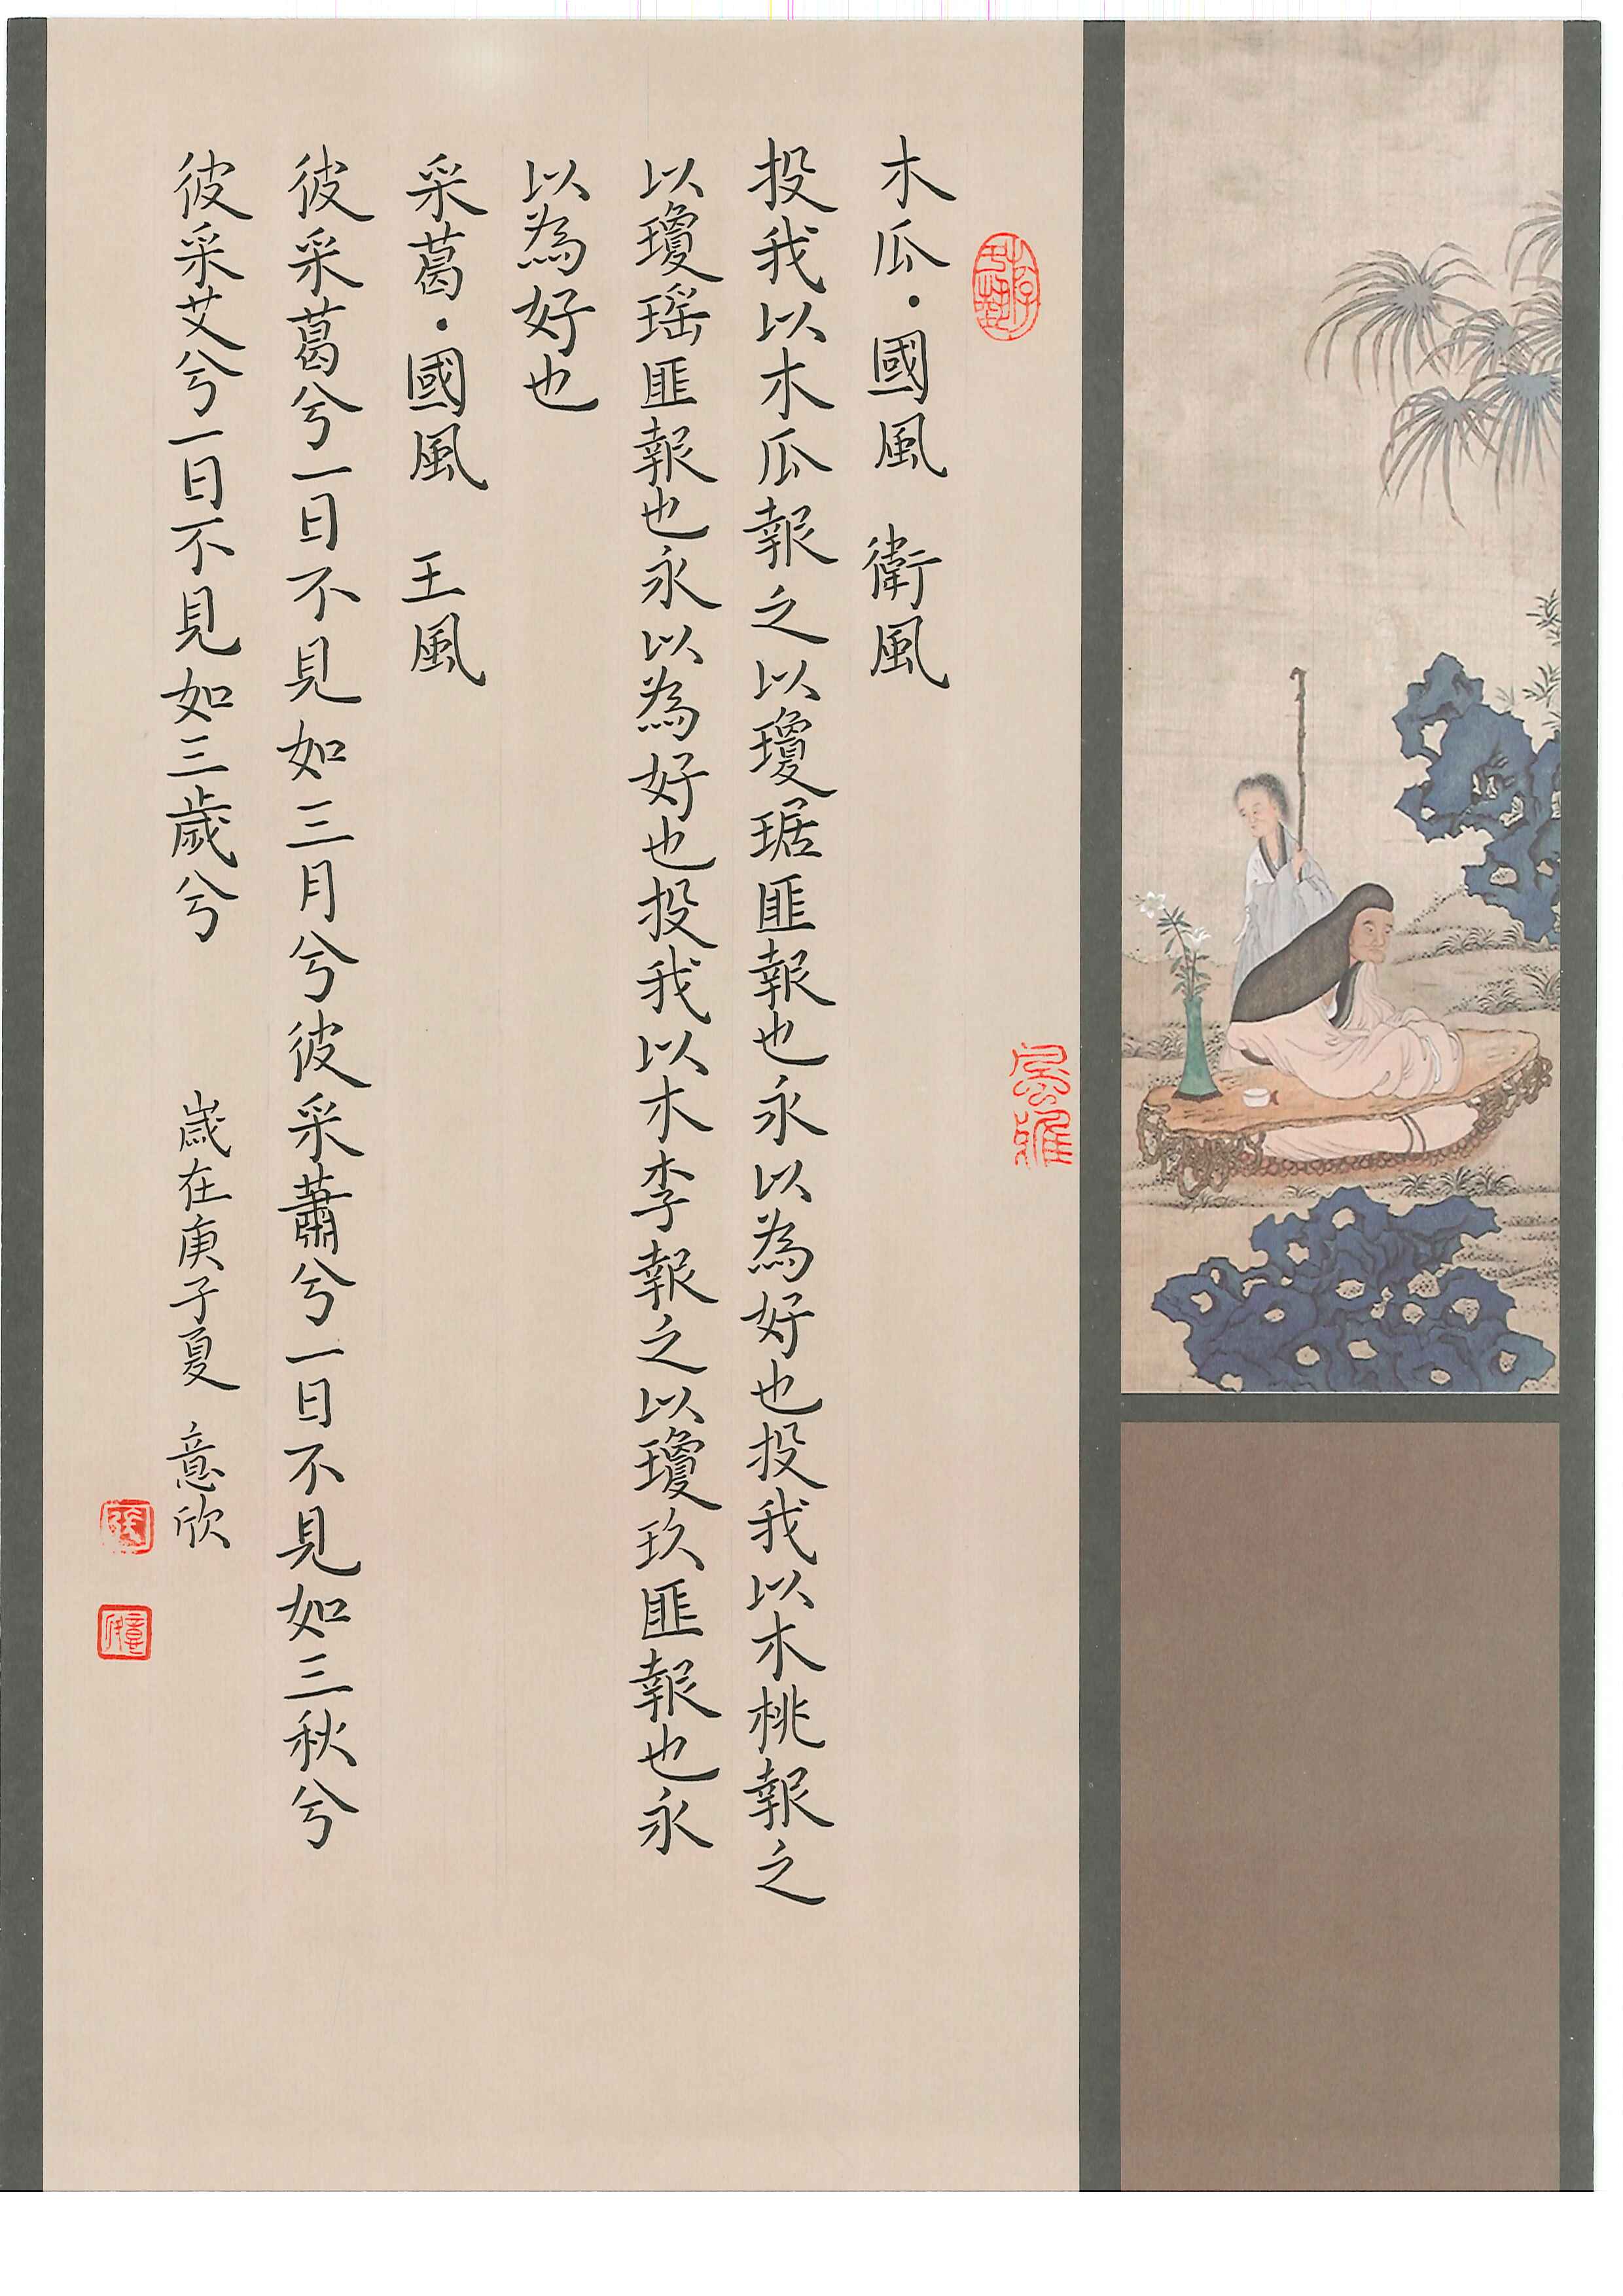 木瓜·國風 衛風
投我以木瓜報之以瓊琚匪報也永以為好也投我以木桃報之
以瓊瑶匪報也永以為好也投我以木李報之以瓊玖匪報也永
以為好也
采葛·國風 王風
彼采葛兮一日不見如三月兮彼采蕭兮一日不見如三秋兮
彼采艾兮一日不見如三歲兮
歲在庚子夏 意欣